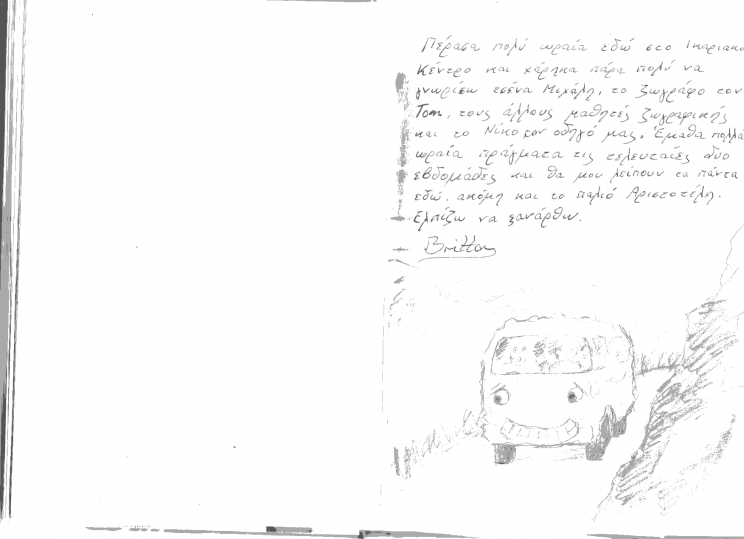 Πέρασα πολύ ωραία εδώ στο Ικαριακό
Κέντρο και χάρηκα πάρα πολύ να
γνωρίσω εσένα Μιχάλη, το ζωγράφο τον
Tom, τους άλλους μαθητές ζωγραφικής
και το Νίκο τον οδηγό μας. Έμαθα πολλά
ωραία πράγματα τις τελευταίες δυο
εβδομάδες και θα μου λείπουν τα πάντα
εδώ, ακόμη και το παλιό Αριστοτέλη.
Ελπίζω να ξανάρθω.
Britta